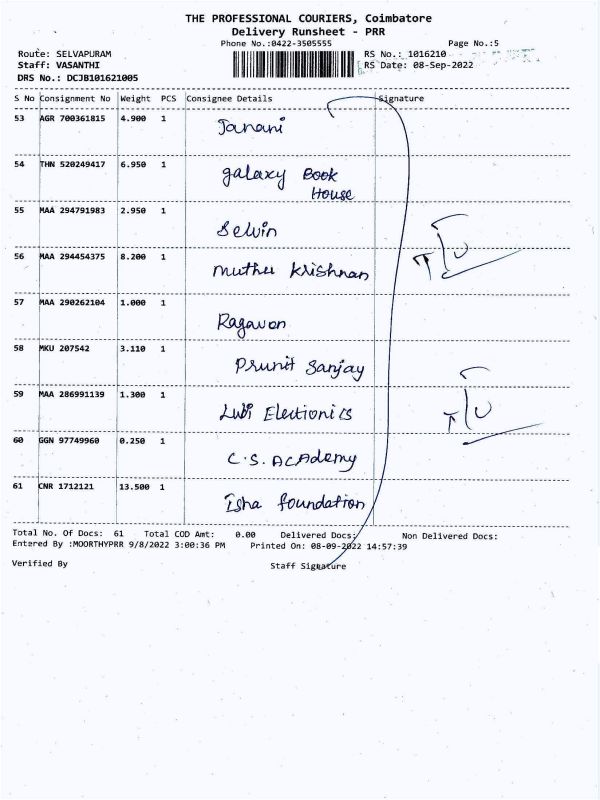 THE PROFESSIONAL COURIERS, Coimbatore
Delivery Runsheet - PRR
Phone No.:0422-3505555 Page No.:5
Route: SELVAPURAM RS No.: 1016210
Staff: VASANTHI RS Date: 08-Sep-2022
DRS No.: DCJB101621005
S No Consignment No Weight PCS Consignee Details Signature
53 AGR 700361815 4.900 1 Janani
54 THN 520249417 6.950 1 galaxy Book
House
55 MAA 294791983 2.950 1 Selvin
56 MAA 294454375 8.200 1 Muthu Krishnan
57 MAA 290262104 1.000 1 Ragavan
58 MKU 207542 3.110 1 Prunit Sanjay
59 MAA 286991139 1.300 1
60 GGN 97749960 0.250 1 C.S. ACAdemy
61 CNR 1712121 13.500 1 Isha foundation
Total No. Of Docs: 61 Total COD Amt: 0.00 Delivered Docs: Non Delivered Docs:
Entered By :MOORTHYPRR 9/8/2022 3:00:36 PM Printed On: 08-09-2022 14:57:39
Verified By Staff Signature